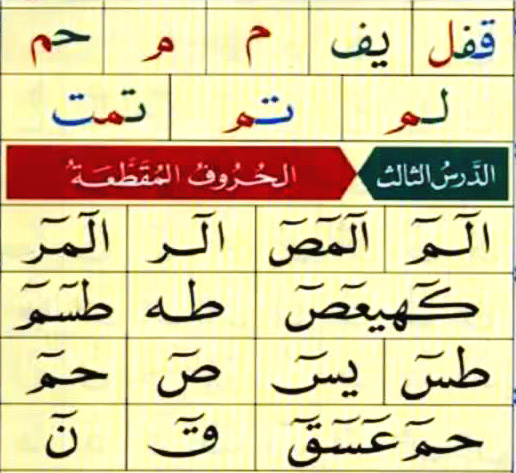 قفل يف م م حم
لم تم تمت
الدَّرسُ الثالث الحُرُوفُ المُقَطَّعَةُ
الٓمٓ الٓمٓصٓ الٓر الٓمٓر
كٓهيعٓصٓ طه طسٓمٓ
طسٓ يسٓ صٓ حمٓ
حمٓ عٓسٓقٓ قٓ نٓ